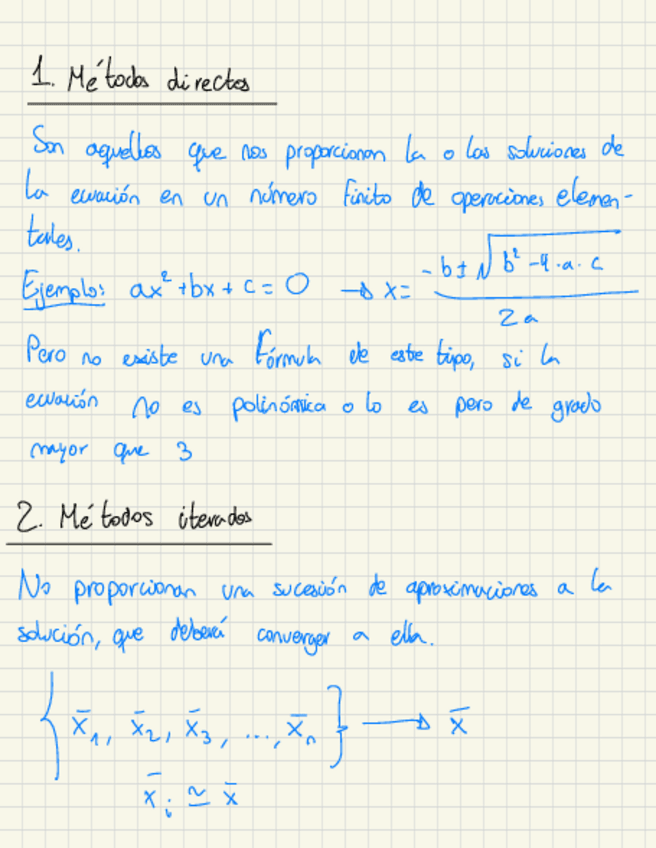 1. Métodos directos
Son aquellos que nos proporcionan la o las soluciones de
la ecuación en un número finito de operaciones elemen-
tales.
Ejemplo: ax² + bx + c = 0 → x = (-b ± √(b² - 4·a·c)) / 2a
Pero no existe una fórmula de este tipo, si la
ecuación no es polinómica o lo es pero de grado
mayor que 3
2. Métodos iterados
No proporcionan una sucesión de aproximaciones a la
solución, que deberá converger a ella.
{x̄₁, x̄₂, x̄₃, ..., x̄ₙ} → x̄
x̄ᵢ ≃ x̄